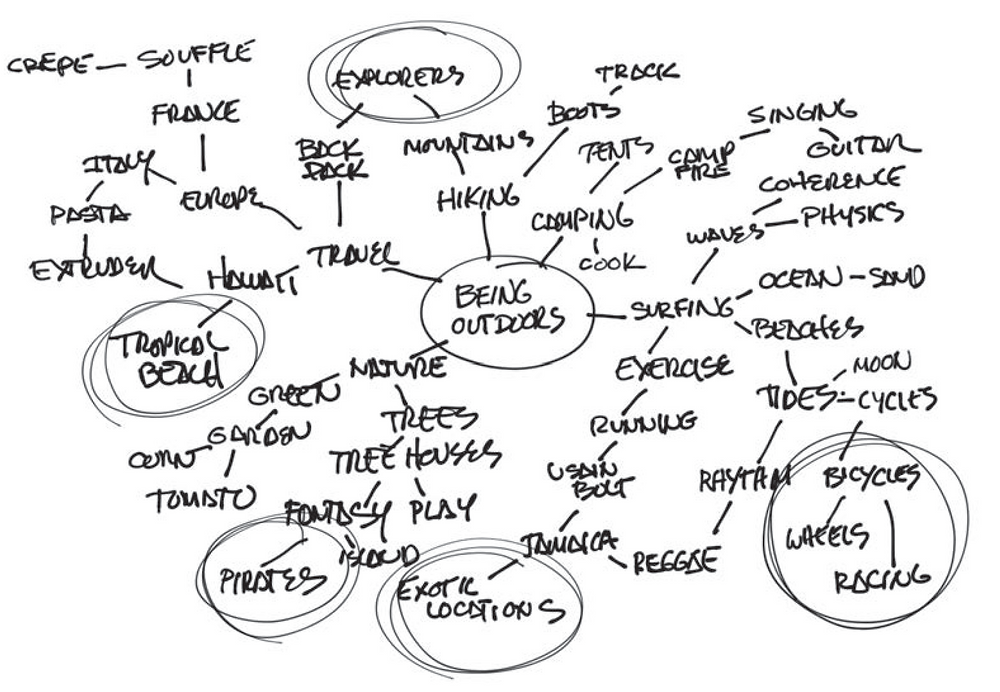 CREPE — SOUFFLE
FRANCE
ITALY
PASTA
EUROPE
EXTRUDER
EXPLORERS
BACK
PACK
MOUNTAINS
HIKING
BOOTS
TRACK
TENTS
CAMP
FIRE
SINGING
GUITAR
CAMPING
COOK
COHERENCE
WAVES
PHYSICS
TRAVEL
HAWAII
TROPICAL
BEACH
BEING
OUTDOORS
SURFING
OCEAN - SAND
BEACHES
EXERCISE
MOON
TIDES
CYCLES
NATURE
GREEN
GARDEN
TOMATO
TREES
TREE HOUSES
FANTASY
PLAY
ISLAND
PIRATES
RUNNING
USAIN
BOLT
JAMAICA
REGGAE
RHYTHM
EXOTIC
LOCATIONS
BICYCLES
WHEELS
RACING